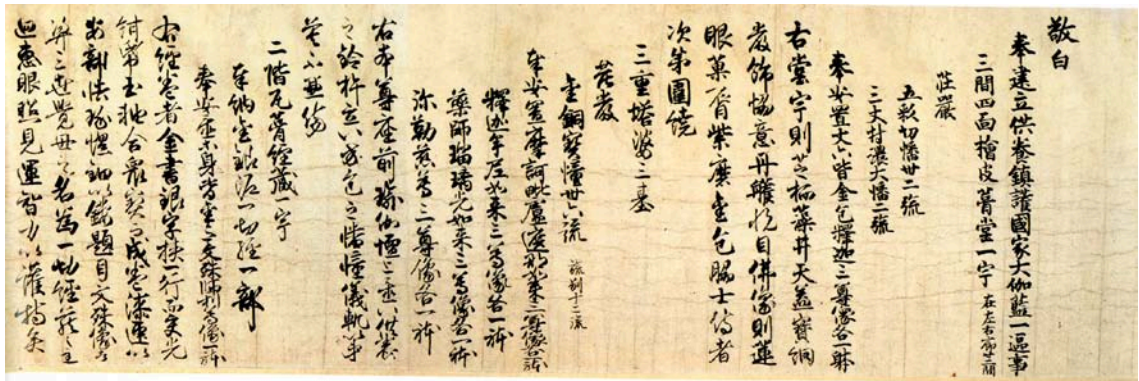 敬白
奉建立供養鎮護國家大伽藍一區事
三間四面檜皮葺堂一宇 在左右廊廿二間
莊嚴
五彩切幡卅二旒
三丈村濃大幡二旒
奉安置丈六皆金色釋迦三尊像各一躰
右堂宇則芝栭藻井天蓋寶網
嚴飾協意丹雘悦目佛像則蓮
眼菓脣紫磨金色脇士侍者
次第圍繞
三重塔婆三基
莊嚴
金銅寶幢卅六旒 旒別十二流
奉安置摩訶毗盧遮那如來三尊像各一躰
釋迦牟尼如來三尊像各一躰
藥師瑠璃光如來三尊像各一躰
弥勒慈尊三尊像各一躰
右本尊座前瑜伽壇上置以供養
之鈴杵立以五色之幡幢儀軌事
莫不兼備
二階瓦葺經藏一宇
奉納金銀泥一切經一部
奉安置等身皆金色文殊師利尊像一躰
右經卷者金書銀字挾一行而交光
紺帋玉軸合衆寶而成卷漆匣以
安部帙琢螺鈿以鏤題目文殊像者
三世覺母之名為一切經藏之主
廻惠眼照見運智力以護持矣